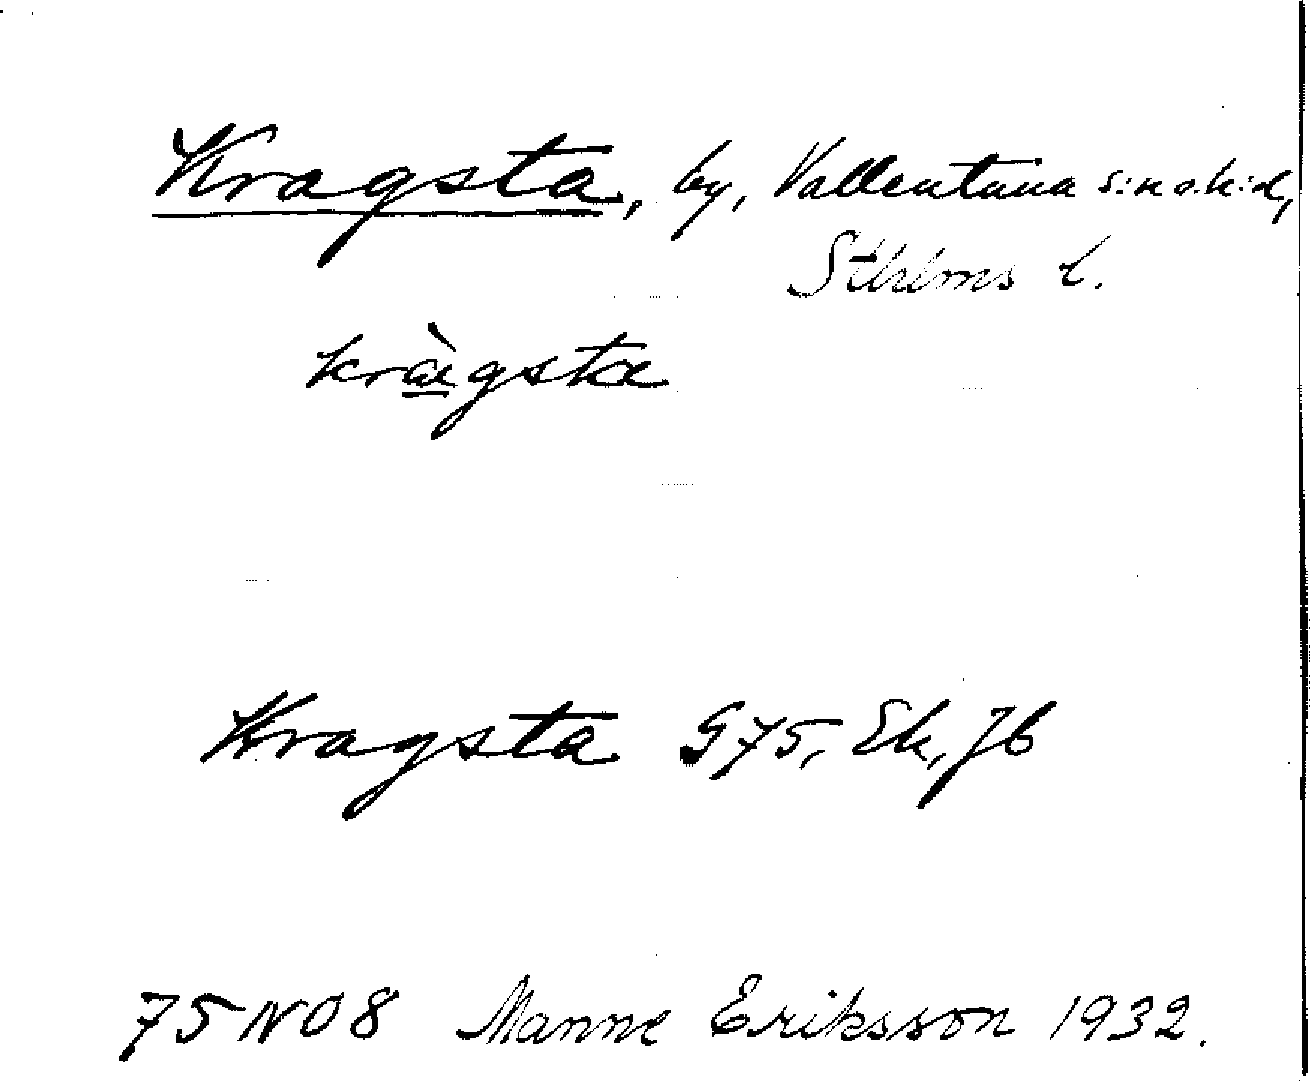 Kragsta, by, Vallentuna s:n o. h:d,
Sthlms l.
kràgsta
Kragsta G75, Ek, Jb
75 NO 8 Manne Eriksson 1932.